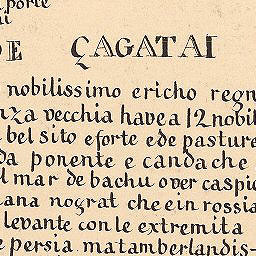 porte
DE ÇAGATAI
nobilissimo ericho regn
nza vecchia have a 12 nobil
bel sito e forte e de pasture
da ponente e canda che
l mar de bachu over caspio
ana nograt che e in rossia
levante con le extremita
e persia matamberlandis-